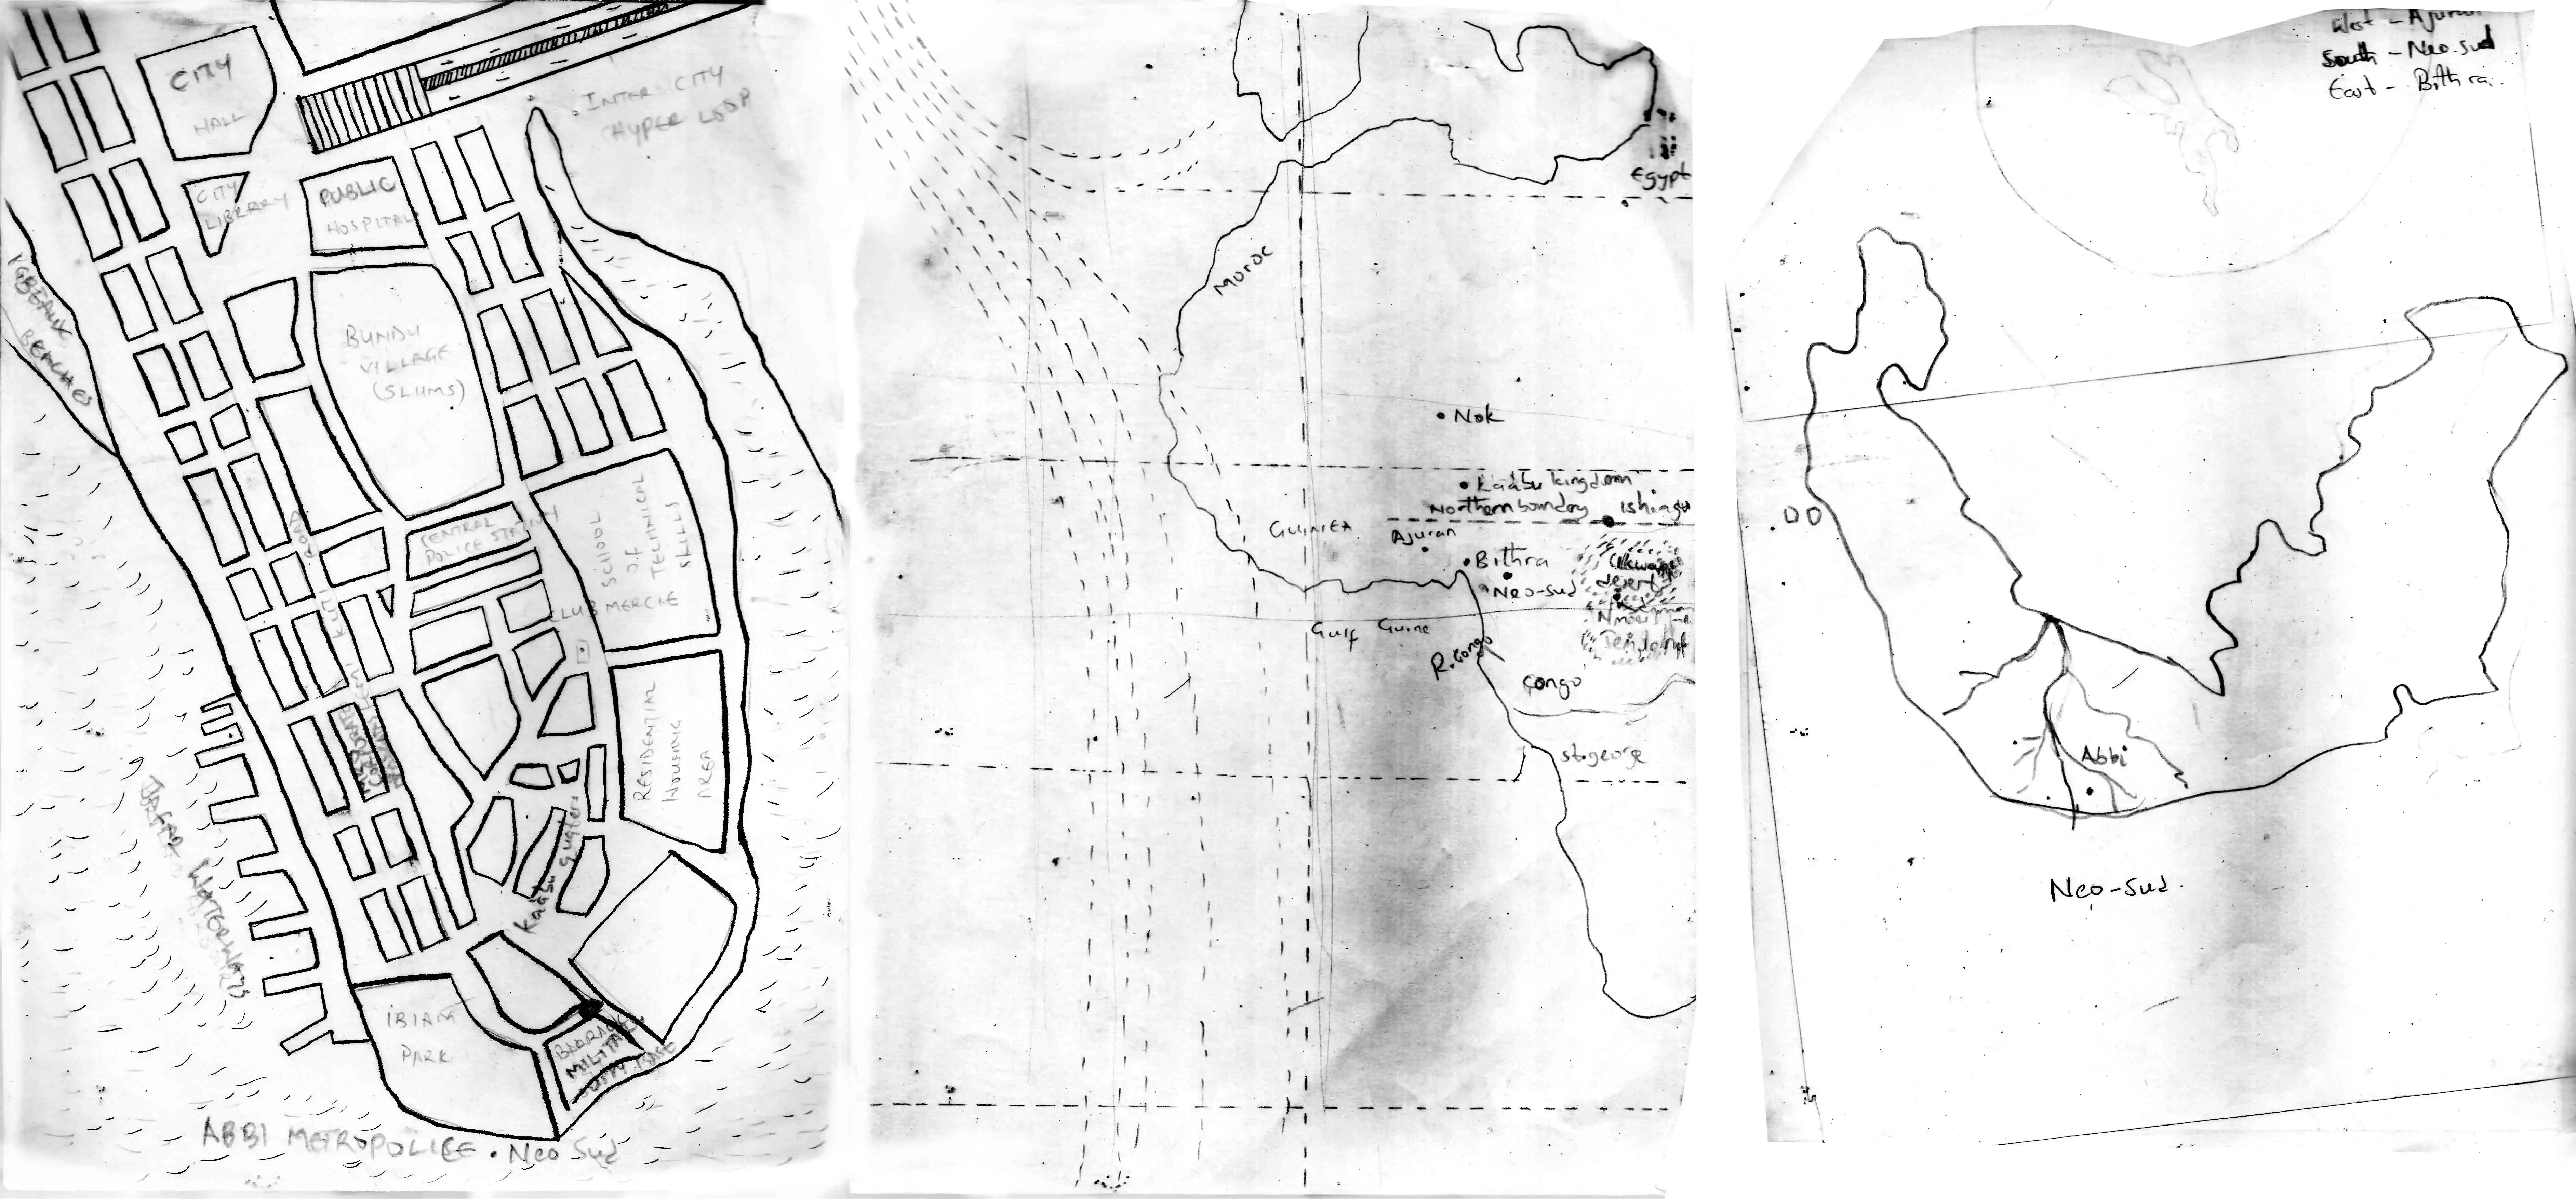 CITY
HALL
INTER CITY
HYPER LOOP
CITY
LIBRARY
PUBLIC
HOSPITAL
BEACHES
BUNDU
VILLAGE
(SLUMS)
ROAD
CENTRAL
POLICE STATION
SCHOOL
OF
TECHNICAL
SKILLS
CLUB MERCIE
RESIDENTIAL
HOUSING
AREA
JAFAR WATERWAYS
Kaabu quaters
IBIAM
PARK
ABBI METROPOLICE . Neo Sud
Egypt
Moroc
Nok
Kaabu kingdom
Northern boundary
GUINEA
Ajuran
Bithra
desert
Neo-sud
Gulf Guine
R. Congo
Congo
st.george
West - Ajuran
South - Neo-sud
East - Bithra.
Abbi
Neo-Sud.